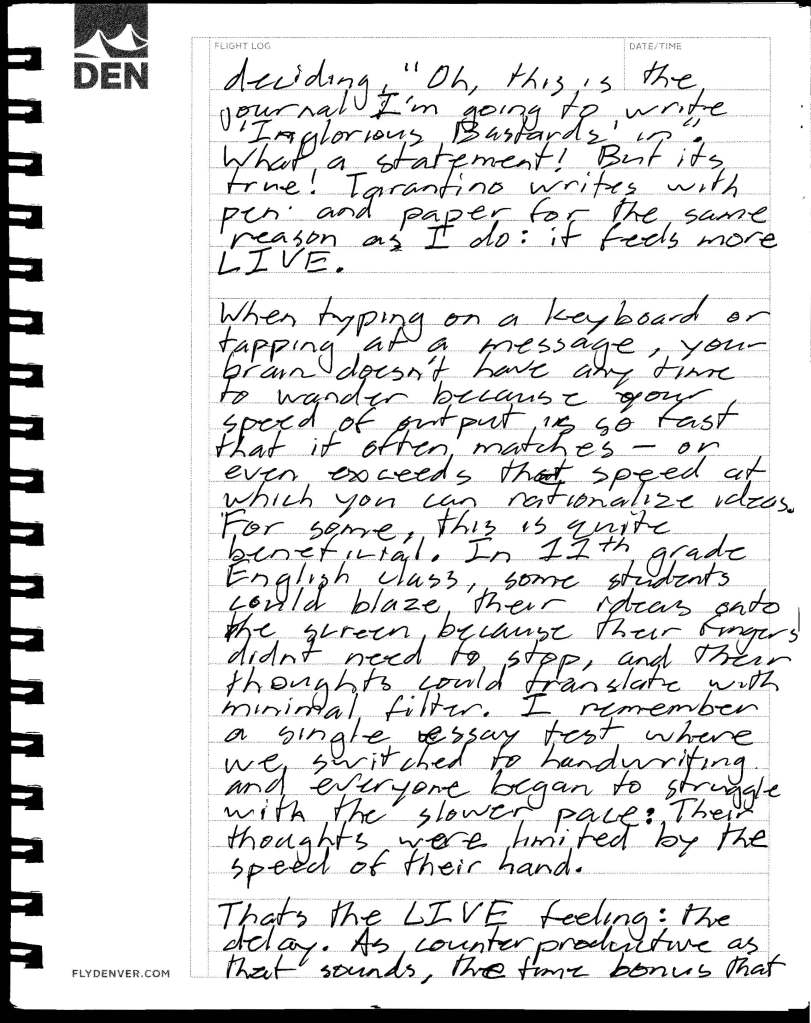 DEN
FLIGHT LOG
DATE/TIME
deciding, "Oh, this is the
journal I'm going to write
'Inglorious Bastards' in".
What a statement! But its
true! Tarantino writes with
pen and paper for the same
reason as I do: it feels more
LIVE.
When typing on a keyboard or
tapping at a message, your
brain doesn't have any time
to wander because your
speed of output is so fast
that it often matches – or
even exceeds that speed at
which you can rationalize ideas.
For some, this is quite
beneficial. In 11th grade
English class, some students
could blaze their ideas onto
the screen because their fingers
didnt need to stop, and their
thoughts could translate with
minimal filter. I remember
a single essay test where
we switched to handwriting
and everyone began to struggle
with the slower pace: Their
thoughts were limited by the
speed of their hand.
Thats the LIVE feeling: the
delay. As counterproductive as
that sounds, the time bonus that
FLYDENVER.COM